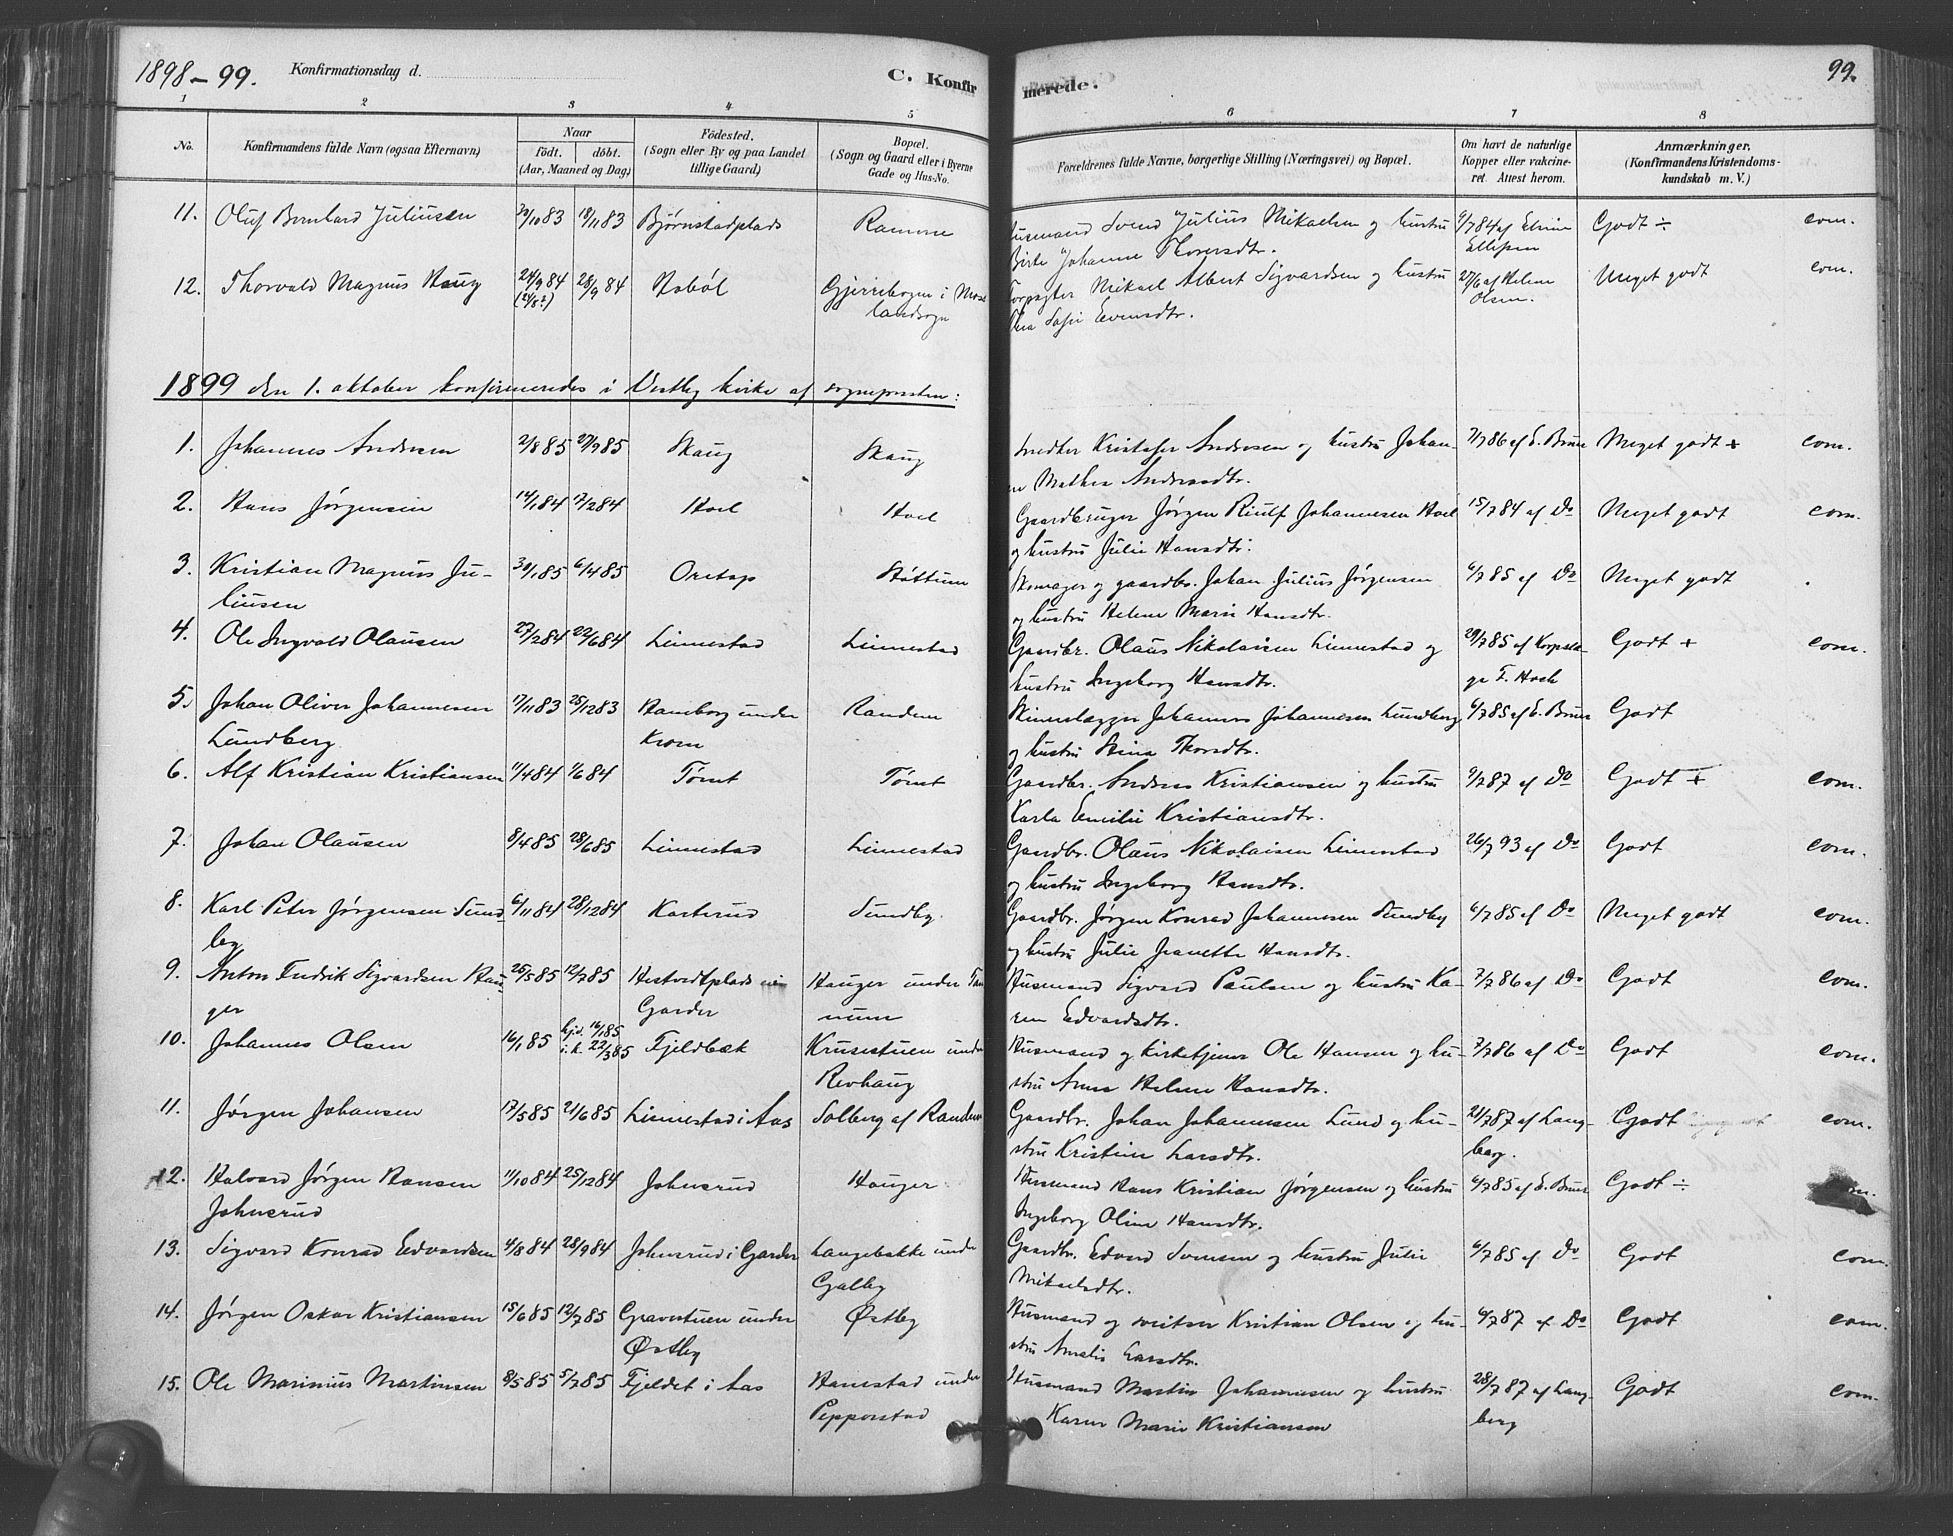 1898–99. Konfirmationsdag d. C. Konfirmerede. 99.
1 2 3 4 5 6 7 8
No. Konfirmandens fulde Navn (ogsaa Efternavn) Naar født. døbt. (Aar, Maaned og Dag) Fødested. (Sogn eller By og paa Landet tillige Gaard) Bopæl. (Sogn og Gaard eller i Byerne Gade og Hus-No. Forældrenes fulde Navne, borgerlige Stilling (Næringsvei) og Bopæl. Om havt de naturlige Kopper eller vakcineret. Attest herom. Anmærkninger. (Konfirmandens Kristendomskundskab m. V.)
11. Oluf Bernhard Juliussen 30/10 83 18/11 83 Bjørnstadplads Ramme Husmand Svend Julius Mikaelsen og hustru 9/7 84 af Godt ÷ com.
Birte Johanne Thoresdtr.
12. Thorvald Magnus Haug 24/9 84 28/9 84 Gjerrebogen i Moss Mikael Albert Sigvardsen og hustru 27/6 af Helene Meget godt com.
(24/8?) landsogn Sofie Evensdtr. Olsen.
1899 den 1. oktober konfirmeredes i Vestby kirke af sognepresten:
1. Johannes Andresen 2/8 85 27/9 85 Skaug Skaug Snedker Kristofer Andresen og hustru Johan- 7/7 86 af E. Bruer Meget godt + com.
ne Mathea Andreasdtr.
2. Hans Jørgensen 14/1 84 17/2 84 Hoel Hoel Gaardbruger Jørgen Riulf Johannesen Hoel 15/7 84 af Do Meget godt com.
og hustru Julie Hansdtr.
3. Kristian Magnus Ju- 30/1 85 6/4 85 Oretop Støttum Skomager og gaardbr. Johan Julius Jørgensen 6/7 85 af Do Meget godt .
liusen og hustru Helene Marie Hansdtr.
4. Ole Ingvald Olausen 27/2 84 22/6 84 Linnestad Linnestad Gaardbr. Olaus Nikolaisen Linnestad og 29/7 85 af Korpslæ- Godt + com.
hustru Ingeborg Hansdtr. ge F. Hoch
5. Johan Oliver Johannesen 17/11 83 25/12 83 Hamborg under Randem Skinnelægger Johannes Johannesen Lundberg 6/7 85 af E. Bruer Godt
Lundberg Krom og hustru Stina Thorsdtr.
6. Alf Kristian Kristiansen 11/4 84 1/6 84 Tømt Tømt Gaardbr. Anders Kristiansen og hustru 9/7 87 af Do Godt + com.
Karla Emilie Kristiansdtr.
7. Johan Olausen 8/4 85 28/6 85 Linnestad Linnestad Gaardbr. Olaus Nikolaisen Linnestad 26/7 93 af Do Godt com.
og hustru Ingeborg Hansdtr.
8. Karl Peter Jørgensen Sund- 6/11 84 28/12 84 Karterud Sundby. Gaardbr. Jørgen Konrad Johannesen Sundby 6/7 85 af Do Meget godt com.
by og hustru Julie Jeanette Hansdtr.
9. Anton Fredrik Sigvardsen Hau- 25/5 85 12/7 85 Hestvedtplads i Hauger under Tan- Husmand Sigvard Paulsen og hustru Ka- 7/7 86 af Do Godt com.
ger Garder num ren Edvardsdtr.
10. Johannes Olsen 16/1 85 hjd. 16/1 85 Fjeldbæk Krusestuen under Husmand og kirketjener Ole Hansen og hu- 7/7 86 af Do Godt com.
i.k. 22/3 85 Revhaug stru Anne Helene Hansdtr.
11. Jørgen Johansen 17/5 85 21/6 85 Linnestad i Aas Solberg af Randem Gaardbr. Johan Johannesen Lund og hu- 21/7 87 af Lang- Godt com.
stru Kristine Larsdtr. berg.
12. Halvard Jørgen Hansen 11/10 84 25/12 84 Johnsrud Hauger Husmand Hans Kristian Jørgensen og hustru 6/7 85 af E. Bruer Godt ÷ com.
Johnsrud Ingeborg Oline Hansdtr.
13. Sigvard Konrad Edvardsen 4/8 84 28/9 84 Johnsrud i Garder Langebakke under Gaardbr. Edvard Svensen og hustru Julie 6/7 85 af Do Godt com.
Galby Mikaelsdtr.
14. Jørgen Oskar Kristiansen 15/6 85 12/7 85 Gravestuen under Østby Husmand og sveitser Kristian Olsen og hu- 9/7 87 af Do Godt com.
Østby stru Amalie Larsdtr.
15. Ole Marinius Martinsen 8/5 85 5/7 85 Fjeldet i Aas Hanestad under Husmand Martin Johannesen og hustru 28/7 87 af Lang- Godt com.
Pepperstad Karen Marie Kristiansen berg